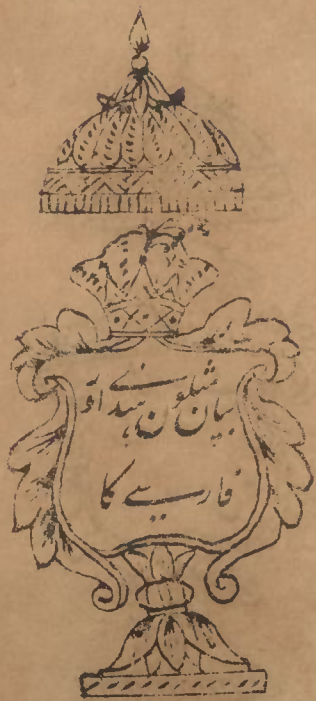 بیان مثلون ہندے اور
فارسے کا